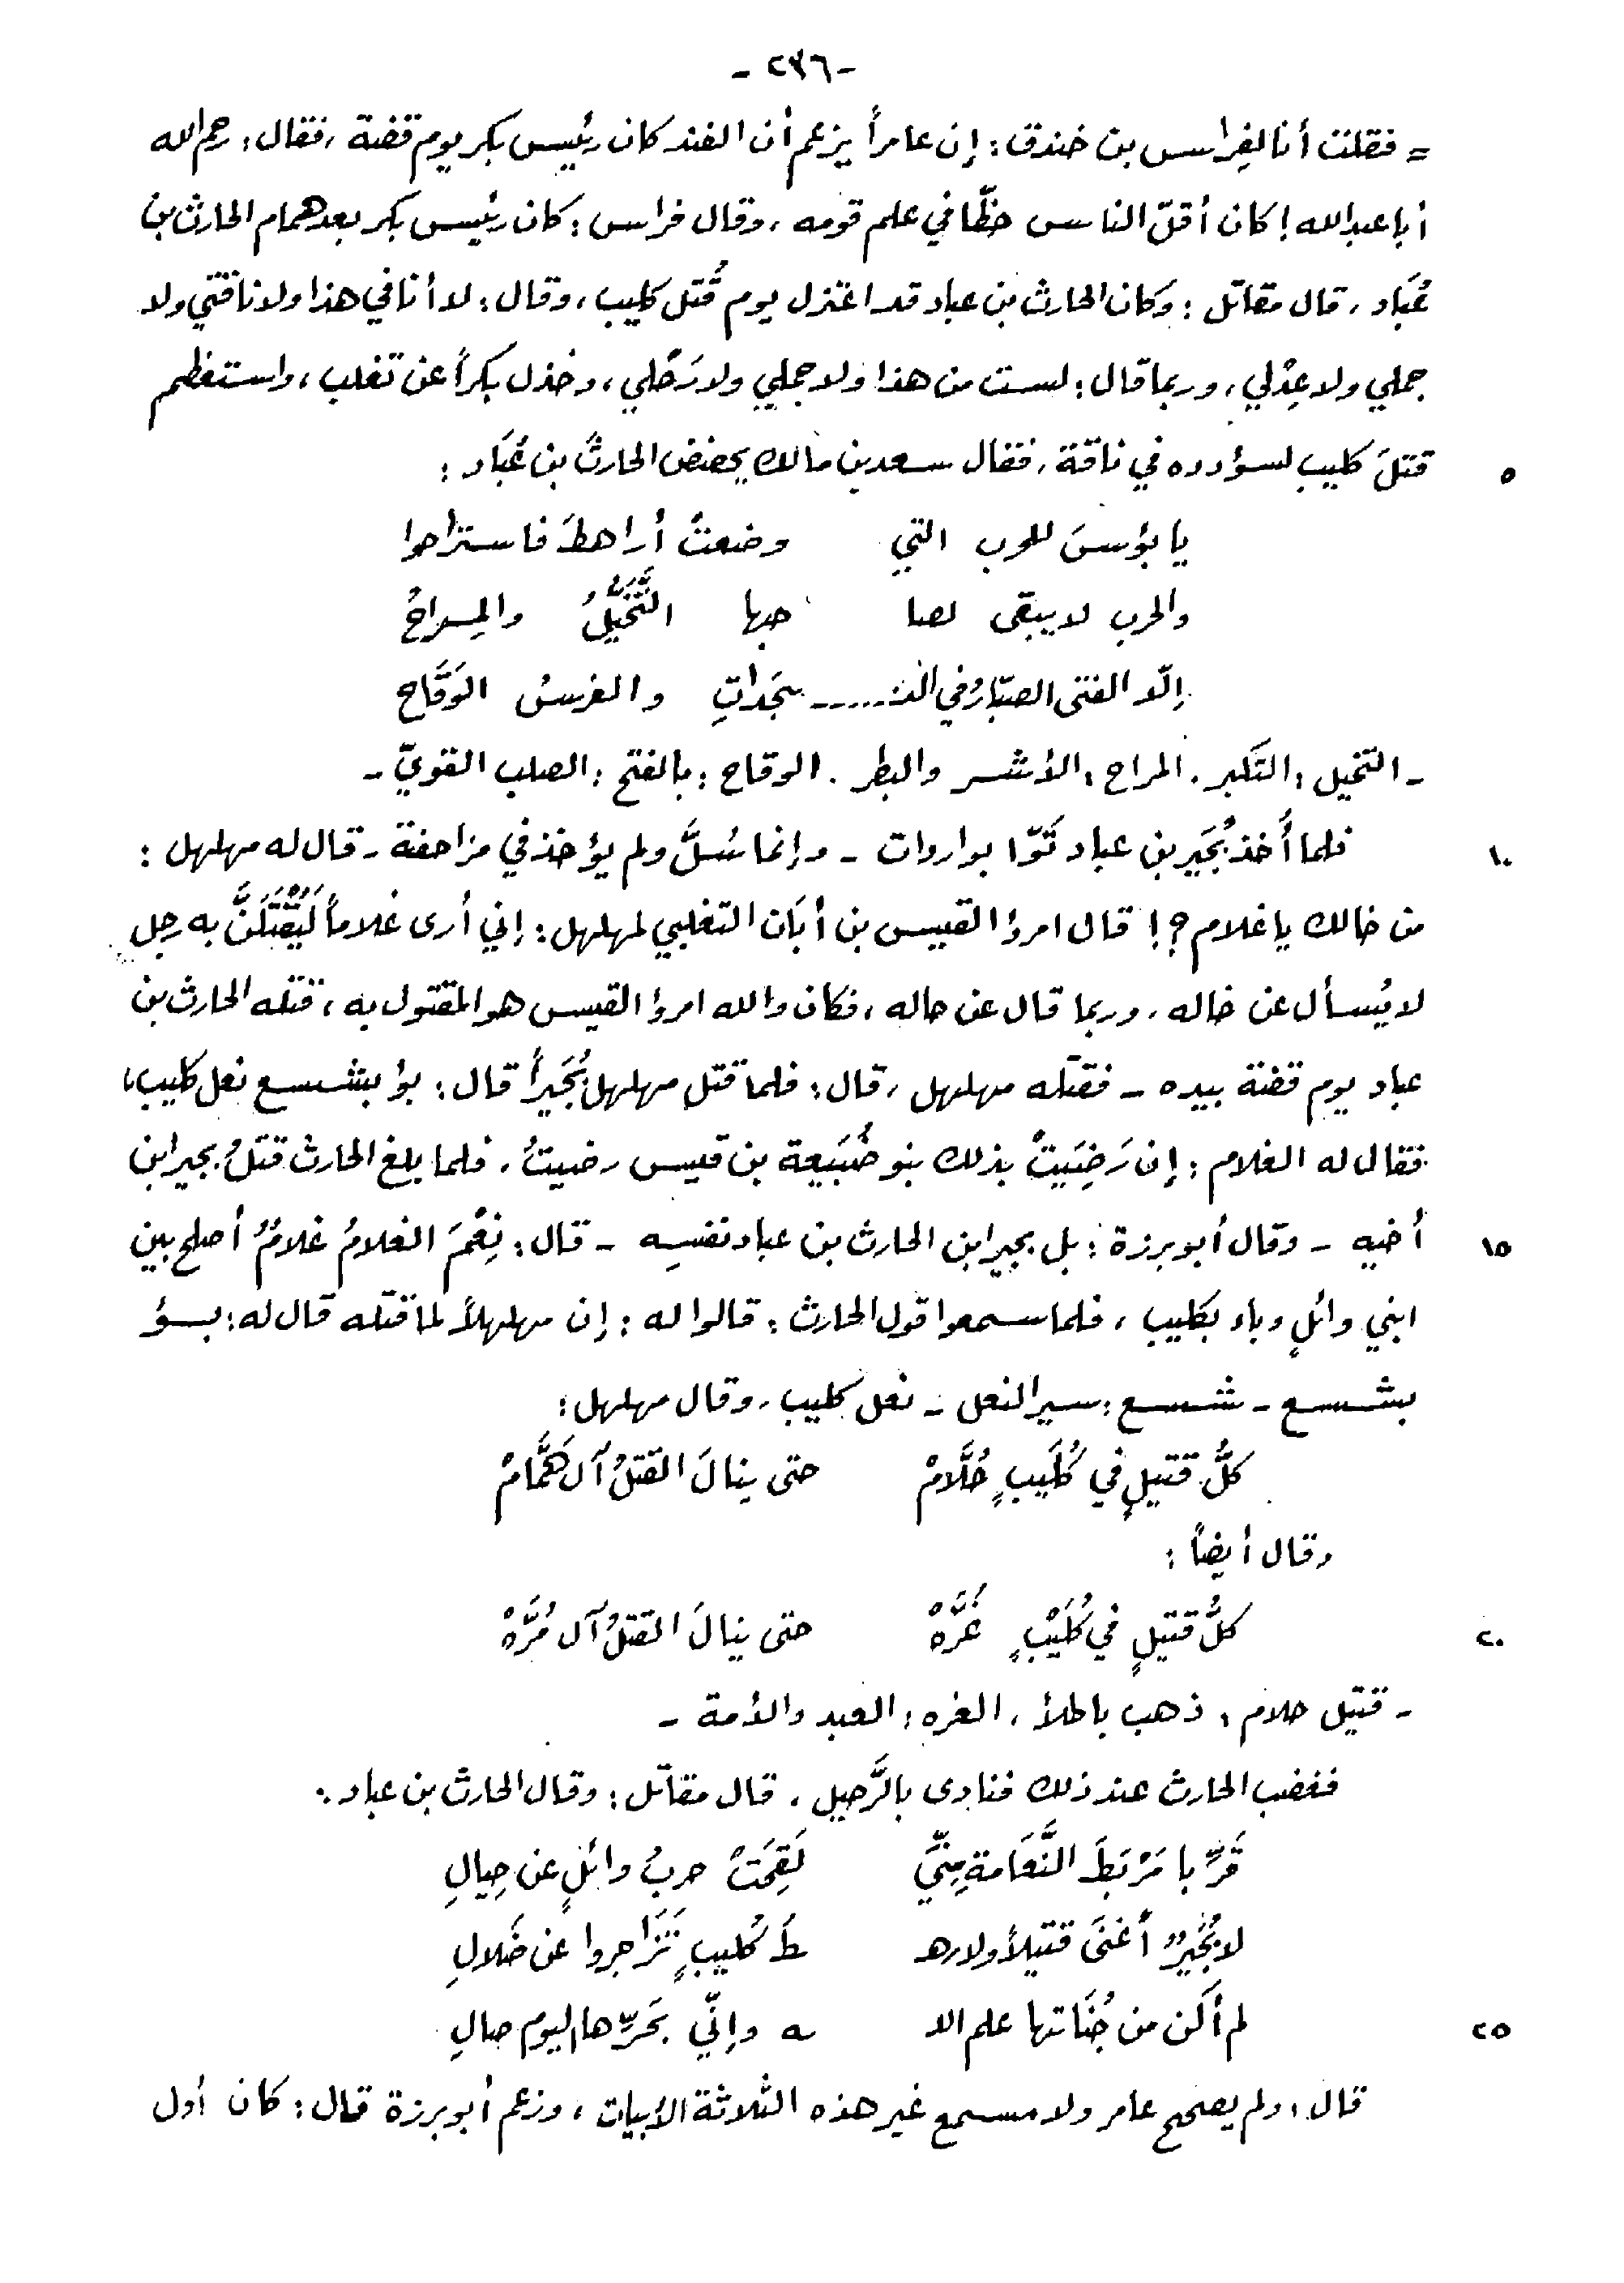 -٢٣٦-
= فقلت أنا لفِراس بن خندق: إن عامراً يزعم أن الفند كان رئيس بكر يوم قضة، فقال: رحم الله
أبا عبد الله! كان أقلّ الناس حظّا في علم قومه، وقال فراس: كان رئيس بكر بعد همام الحارث بن
عُبَاد، قال مقاتل: وكان الحارث بن عباد قد اعتزل يوم قُتل كليب، وقال: لا أنا في هذا ولا ناقتي ولا
جملي ولا عِدْلي، وربما قال: لست من هذا ولا جملي ولا رَحْلي، وخذل بكراً عن تغلب، واستعظم
٥ قتلَ كليب لسؤدده في ناقة، فقال سعد بن مالك يحضض الحارثَ بن عُبَاد:
يا بؤسَ للحرب التي وضعتْ أراهطَ فاستراحوا
والحرب لا يبقى لصا حبها التَّخَيُّلُ والمِراحُ
إلّا الفتى الصبّارُ في النـ ..... ـجَداتِ والفرسُ الوَقَّاح
- التخيل: التكبر. المراح: الأشر والبطر. الوقاح: بالفتح: الصلب القويّ -
١٠ فلما أُخذ بُجَير بن عباد تَوّا بواردات - وإنما سُلَّ ولم يؤخذ في مزاحفة - قال له مهلهل:
من خالك يا غلام؟! قال امرؤ القيس بن أبَان التغلبي لمهلهل: إني أرى غلاماً لَيُقْتَلَنَّ به رجل
لا يُسأل عن خاله، وربما قال عن حاله، فكان والله امرؤ القيس هو المقتول به، قتله الحارث بن
عباد يوم قضة بيده - فقتله مهلهل، قال: فلما قتل مهلهل بُجَيراً قال: بؤ بشسع نعل كليب،
فقال له الغلام: إن رَضِيَتْ بذلك بنو ضُبَيعة بن قيس رضيتُ، فلما بلغ الحارث قتلُ بجير ابن
١٥ أخيه - وقال أبو برزة: بل بجير ابن الحارث بن عباد نفسِه - قال: نِعْمَ الغلامُ غلامٌ أصلح بين
ابني وائلٍ وباء بكليب، فلما سمعوا قول الحارث، قالوا له: إن مهلهلاً لما قتله قال له: بـؤ
بشسع - شسع: سير النعل - نعل كليب، وقال مهلهل:
كلُّ قتيلٍ في كُلَيبٍ حُلَّامْ حتى ينالَ القتلُ آلَ هَمَّامْ
وقال أيضاً:
٢٠ كلُّ قتيلٍ في كُلَيْبٍ غُرَّهْ حتى ينالَ القتلُ آل مُرَّهْ
- قتيل حلام، ذهب باطلاً، الغره: العبد والأمة -
فغضب الحارث عند ذلك فنادى بالرَّحيل، قال مقاتل: وقال الحارث بن عباد:
قَرِّبا مَرْبَطَ النَّعَامةِ مِنِّي لَقِحَتْ حربُ وائلٍ عن حِيالِ
لا بُجَيرٌ أغنَى قتيلاً ولا رهـ طُ كُليبٍ تَزَاجروا عن ضَلالِ
٢٥ لم أكن من جُنَاتها علم اللـ ـه وإنّي بحَرِّها اليوم صالِ
قال: ولم يصحح عامر ولا مسمع غير هذه الثلاثة الأبيات، وزعم أبو برزة قال: كان أول